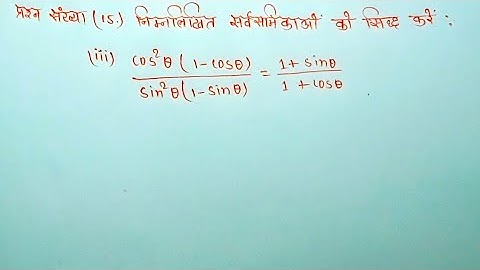 प्रश्न संख्या (15.) निम्नलिखित सर्वसमिकाओं को सिद्ध करें :
(iii) cos²θ (1-cosθ) / sin²θ(1-sinθ) = 1+sinθ / 1+cosθ